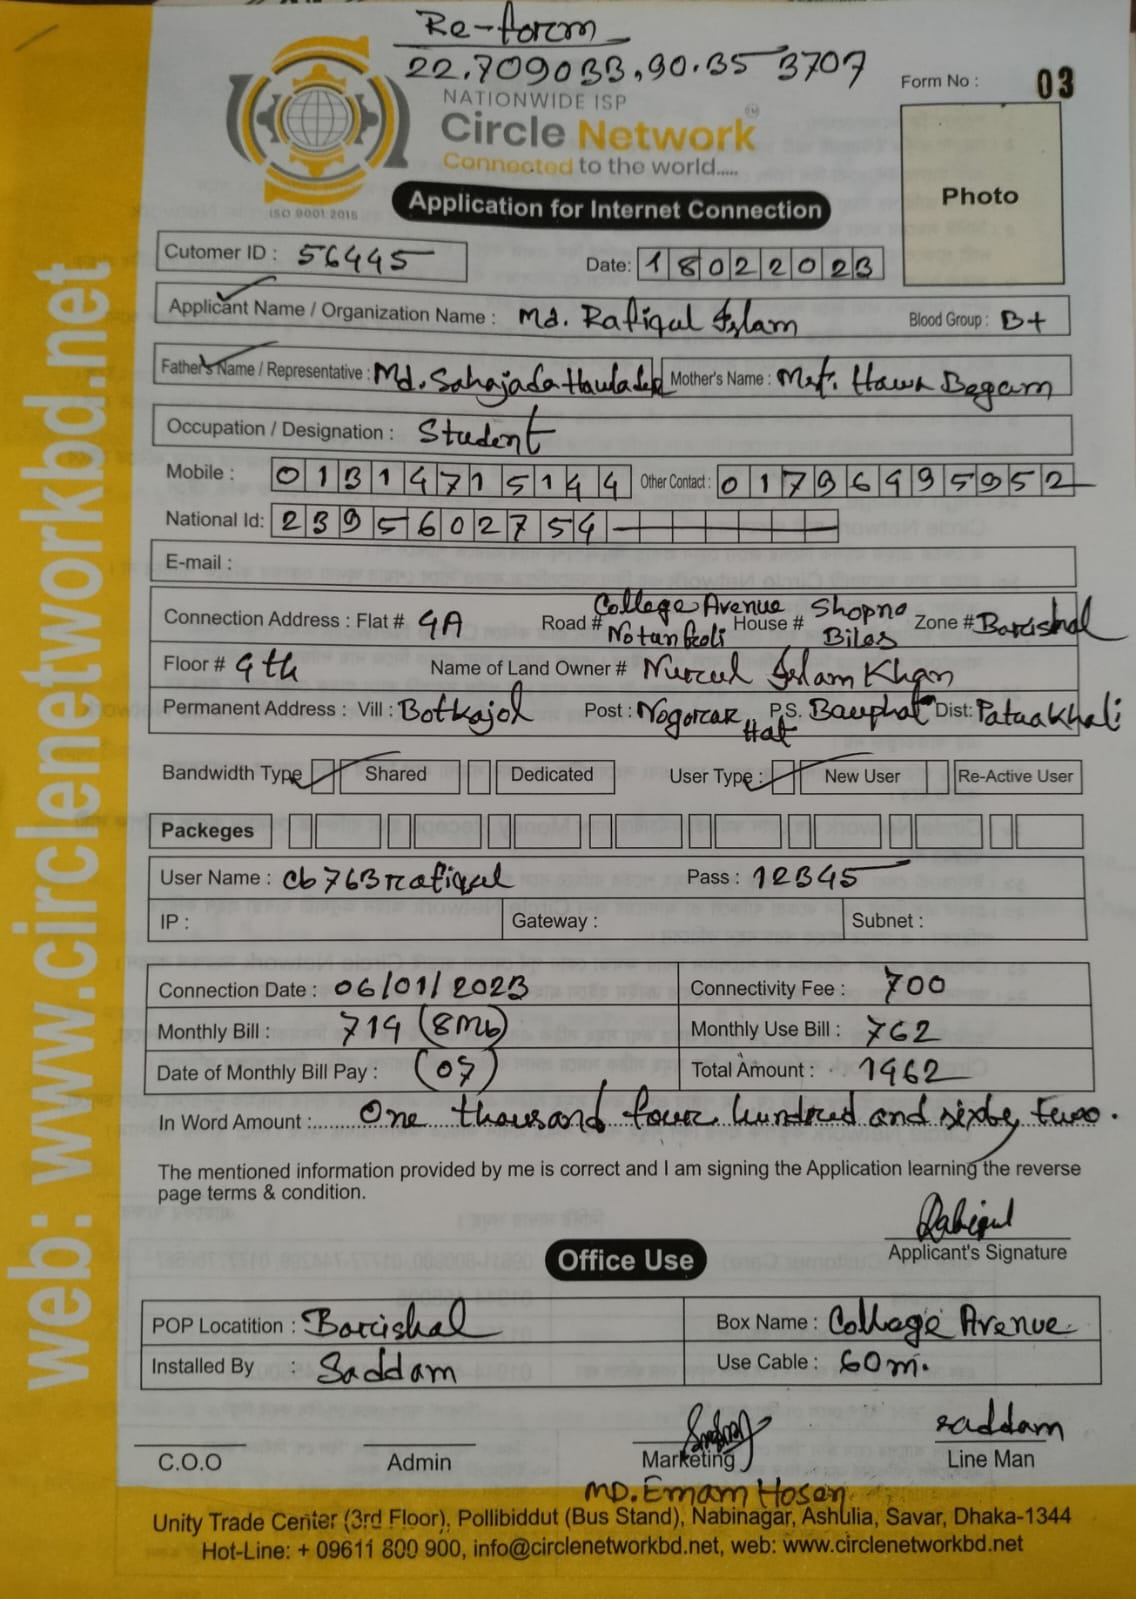 Re-form
22.709033,90.353707
Form No : 03
NATIONWIDE ISP
Circle Network
Connected to the world.....
ISO 9001:2015
Photo
Application for Internet Connection
Cutomer ID : 56445 Date: 18022023
Applicant Name / Organization Name : Md. Rafiqul Islam Blood Group : B+
Father's Name / Representative : Md. Sahajada Howlader Mother's Name : Mst. Hawa Begam
Occupation / Designation : Student
Mobile : 01314715144 Other Contact : 01796995952
National Id: 2395602754
E-mail :
Connection Address : Flat # 4A Road # College Avenue Notun Goli House # Shopno Bilas Zone # Barishal
Floor # 4th Name of Land Owner # Nurul Islam Khan
Permanent Address : Vill : Botkajol Post : Nogorar Hat P.S. Bauphal Dist: Patuakhali
Bandwidth Type Shared Dedicated User Type : New User Re-Active User
Packeges
User Name : cb763rafiqul Pass : 12345
IP : Gateway : Subnet :
Connection Date : 06/01/2023 Connectivity Fee : 700
Monthly Bill : 714 (8Mb) Monthly Use Bill : 762
Date of Monthly Bill Pay : (07) Total Amount : 1462
In Word Amount :..... One thousand four hundred and sixty two.
The mentioned information provided by me is correct and I am signing the Application learning the reverse
page terms & condition.
Rafiqul
Applicant's Signature
Office Use
POP Locatition : Barishal Box Name : Collage Avenue
Installed By : Saddam Use Cable : 60m.
saddam
C.O.O Admin Marketing Line Man
MD. Emam Hosen
Unity Trade Center (3rd Floor), Pollibiddut (Bus Stand), Nabinagar, Ashulia, Savar, Dhaka-1344
Hot-Line: + 09611 800 900, info@circlenetworkbd.net, web: www.circlenetworkbd.net
web: www.circlenetworkbd.net